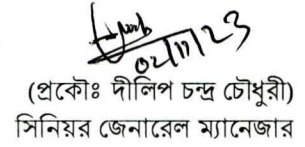 02/11/23
(প্রকৌঃ দীলিপ চন্দ্র চৌধুরী)
সিনিয়র জেনারেল ম্যানেজার